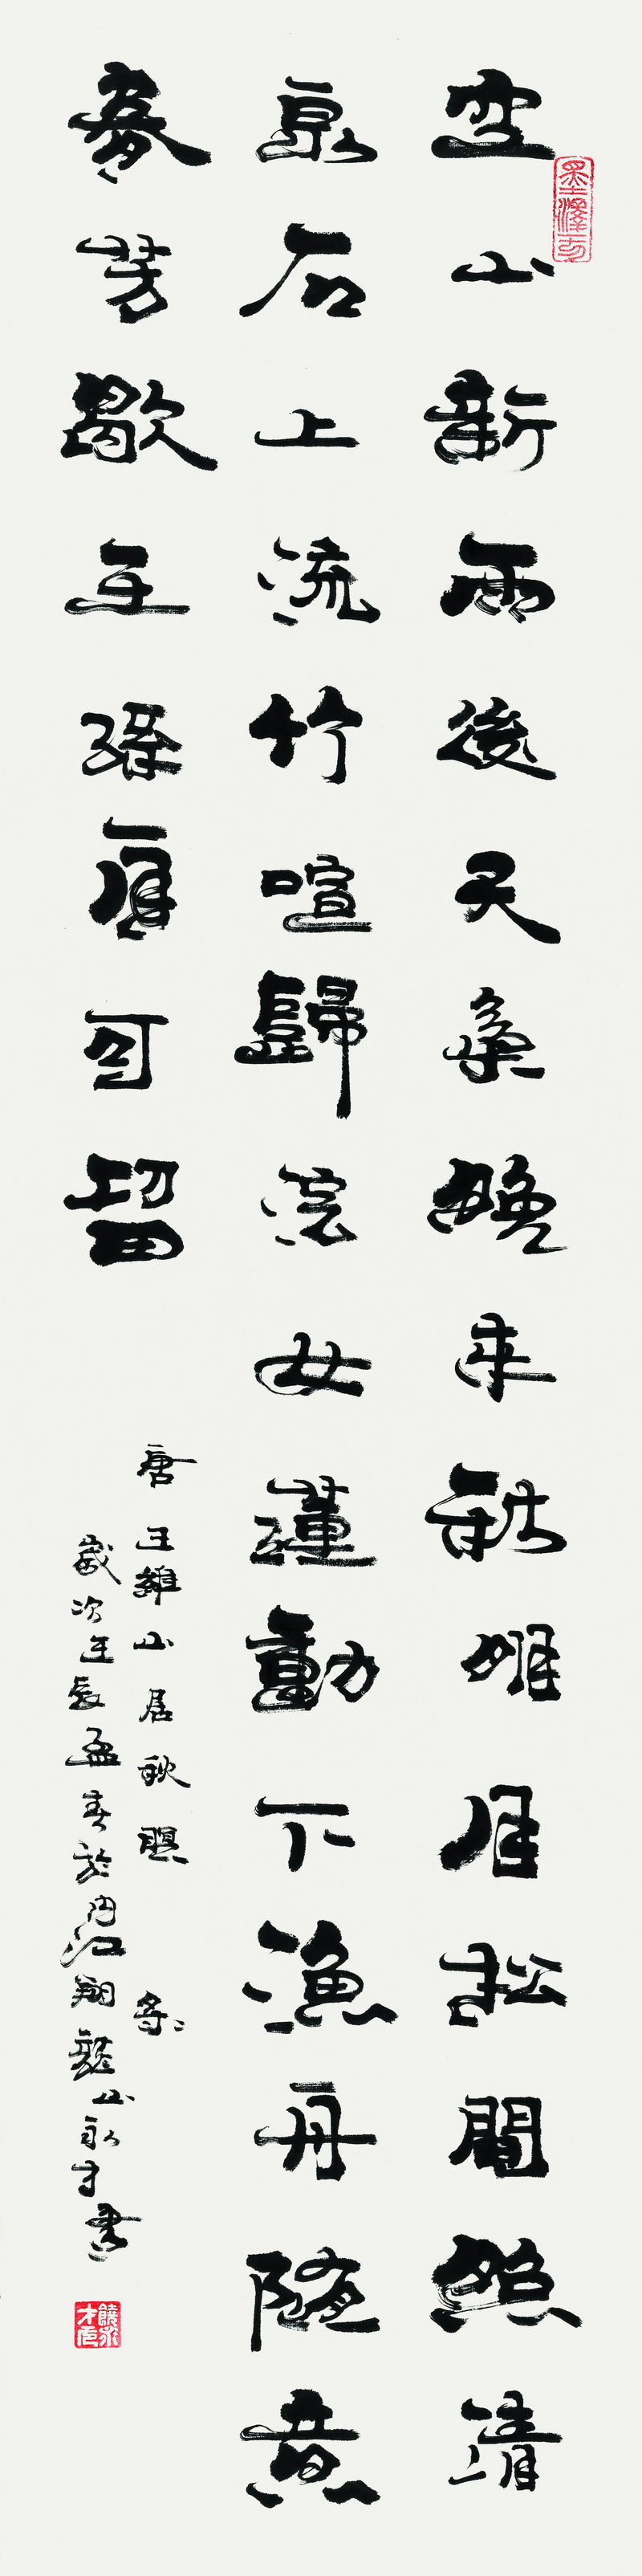 空山新雨後天氣晚來秋明月松間照清
泉石上流竹喧歸浣女蓮動下漁舟隨意
春芳歇王孫自可留
唐王維山居秋暝
歲次壬辰孟春於內江翔龍山永才書
墨澤
饒永才印